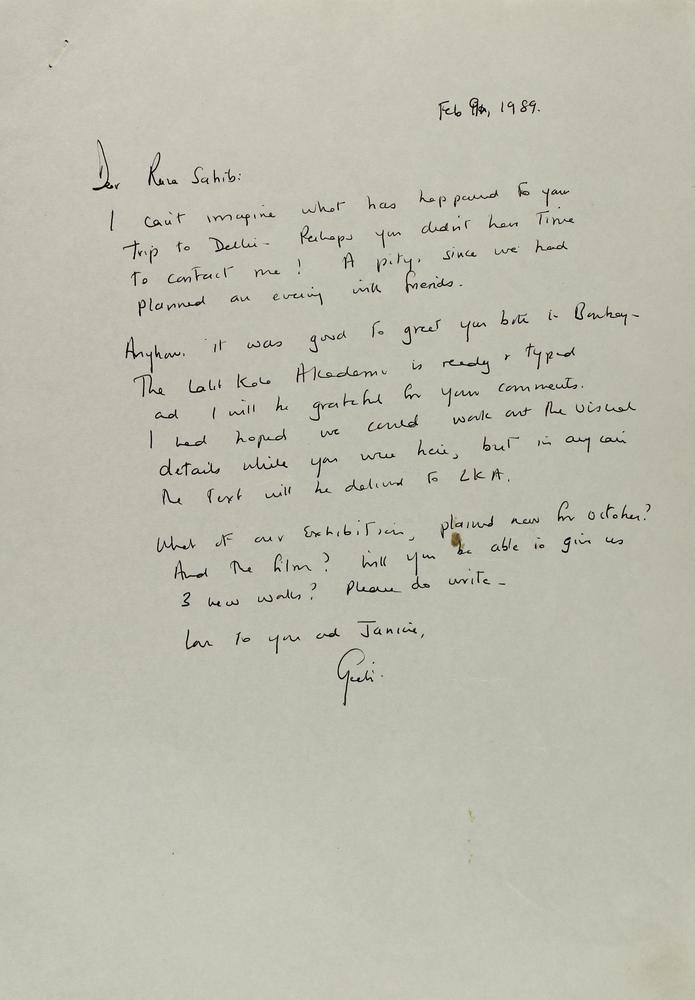 Feb 9th, 1989.
Dear Raza Sahib:
I can't imagine what has happened to your
trip to Delhi - Perhaps you didn't have time
to contact me! A pity, since we had
planned an evening with friends.
Anyhow, it was good to greet you both in Bombay -
The Lalit Kala Akademi is ready & typed
and I will be grateful for your comments.
I had hoped we could work out the visual
details while you were here, but in any case
the text will be delivered to LKA.
What of our Exhibition, planned now for October?
And the film? Will you be able to give us
3 new works? Please do write -
Love to you and Janine,
Geeti.